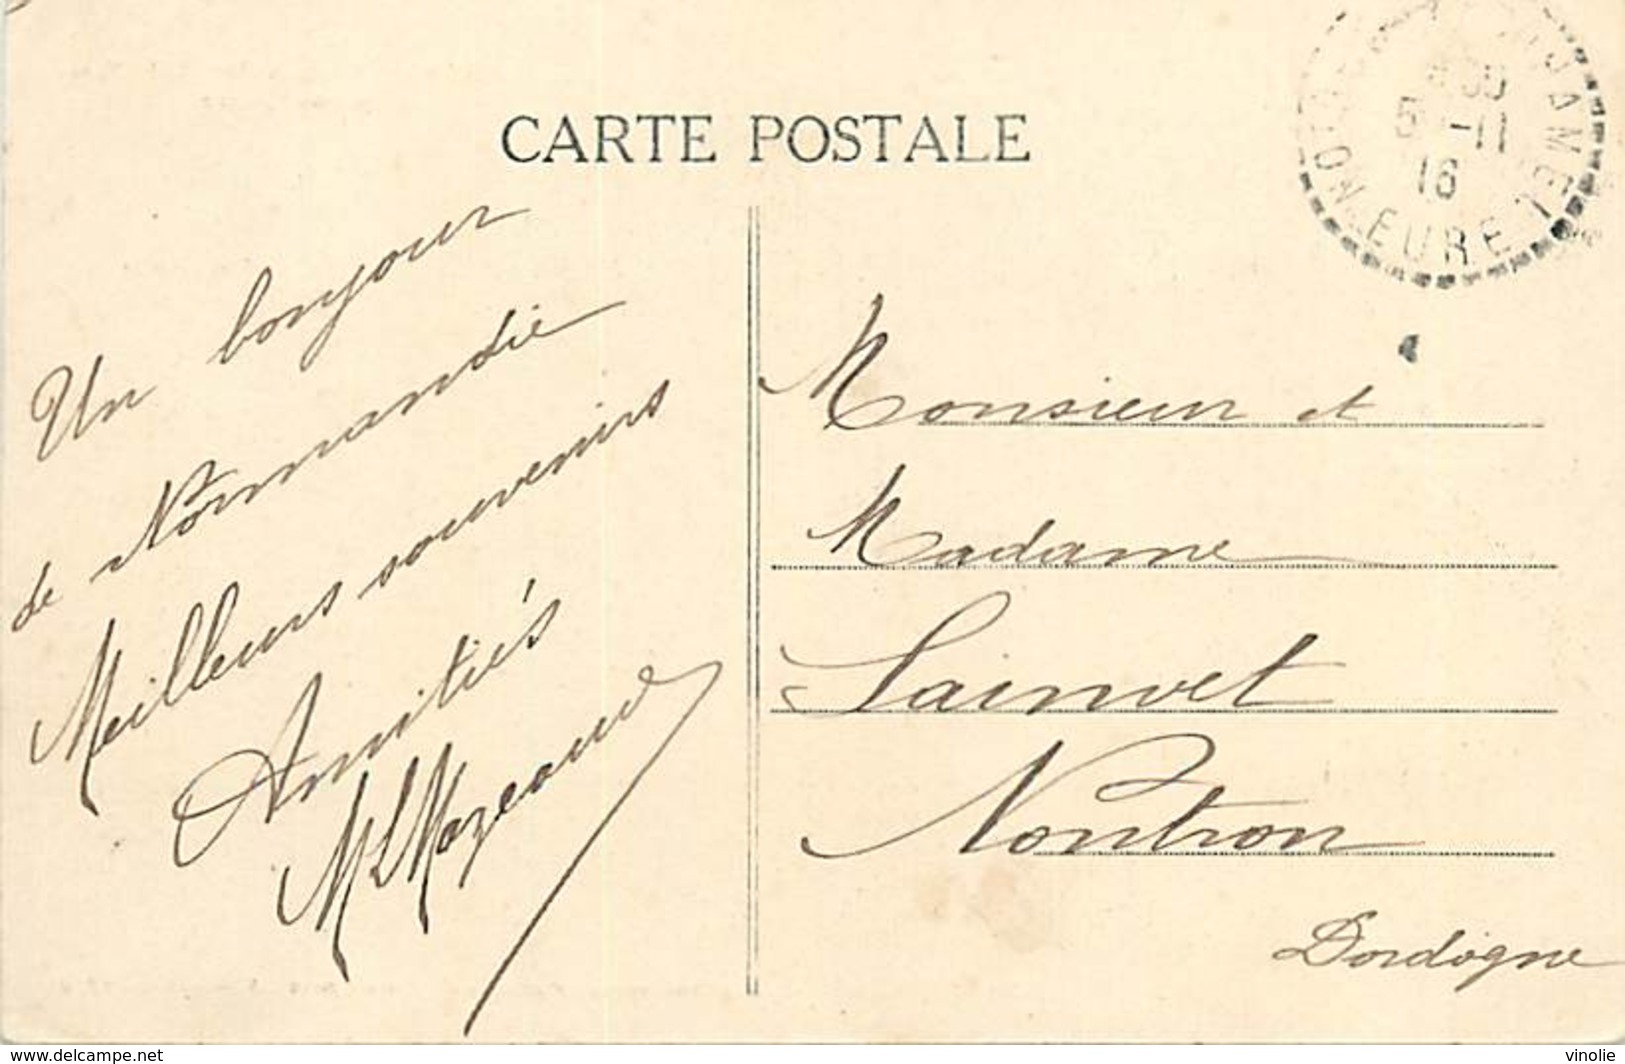 CARTE POSTALE
5 -11
16
EURE
Un bonjour
de Normandie
Meilleurs souvenirs
Amitiés
Monsieur et
Madame
Nontron
Dordogne
www.delcampe.net
vinolie